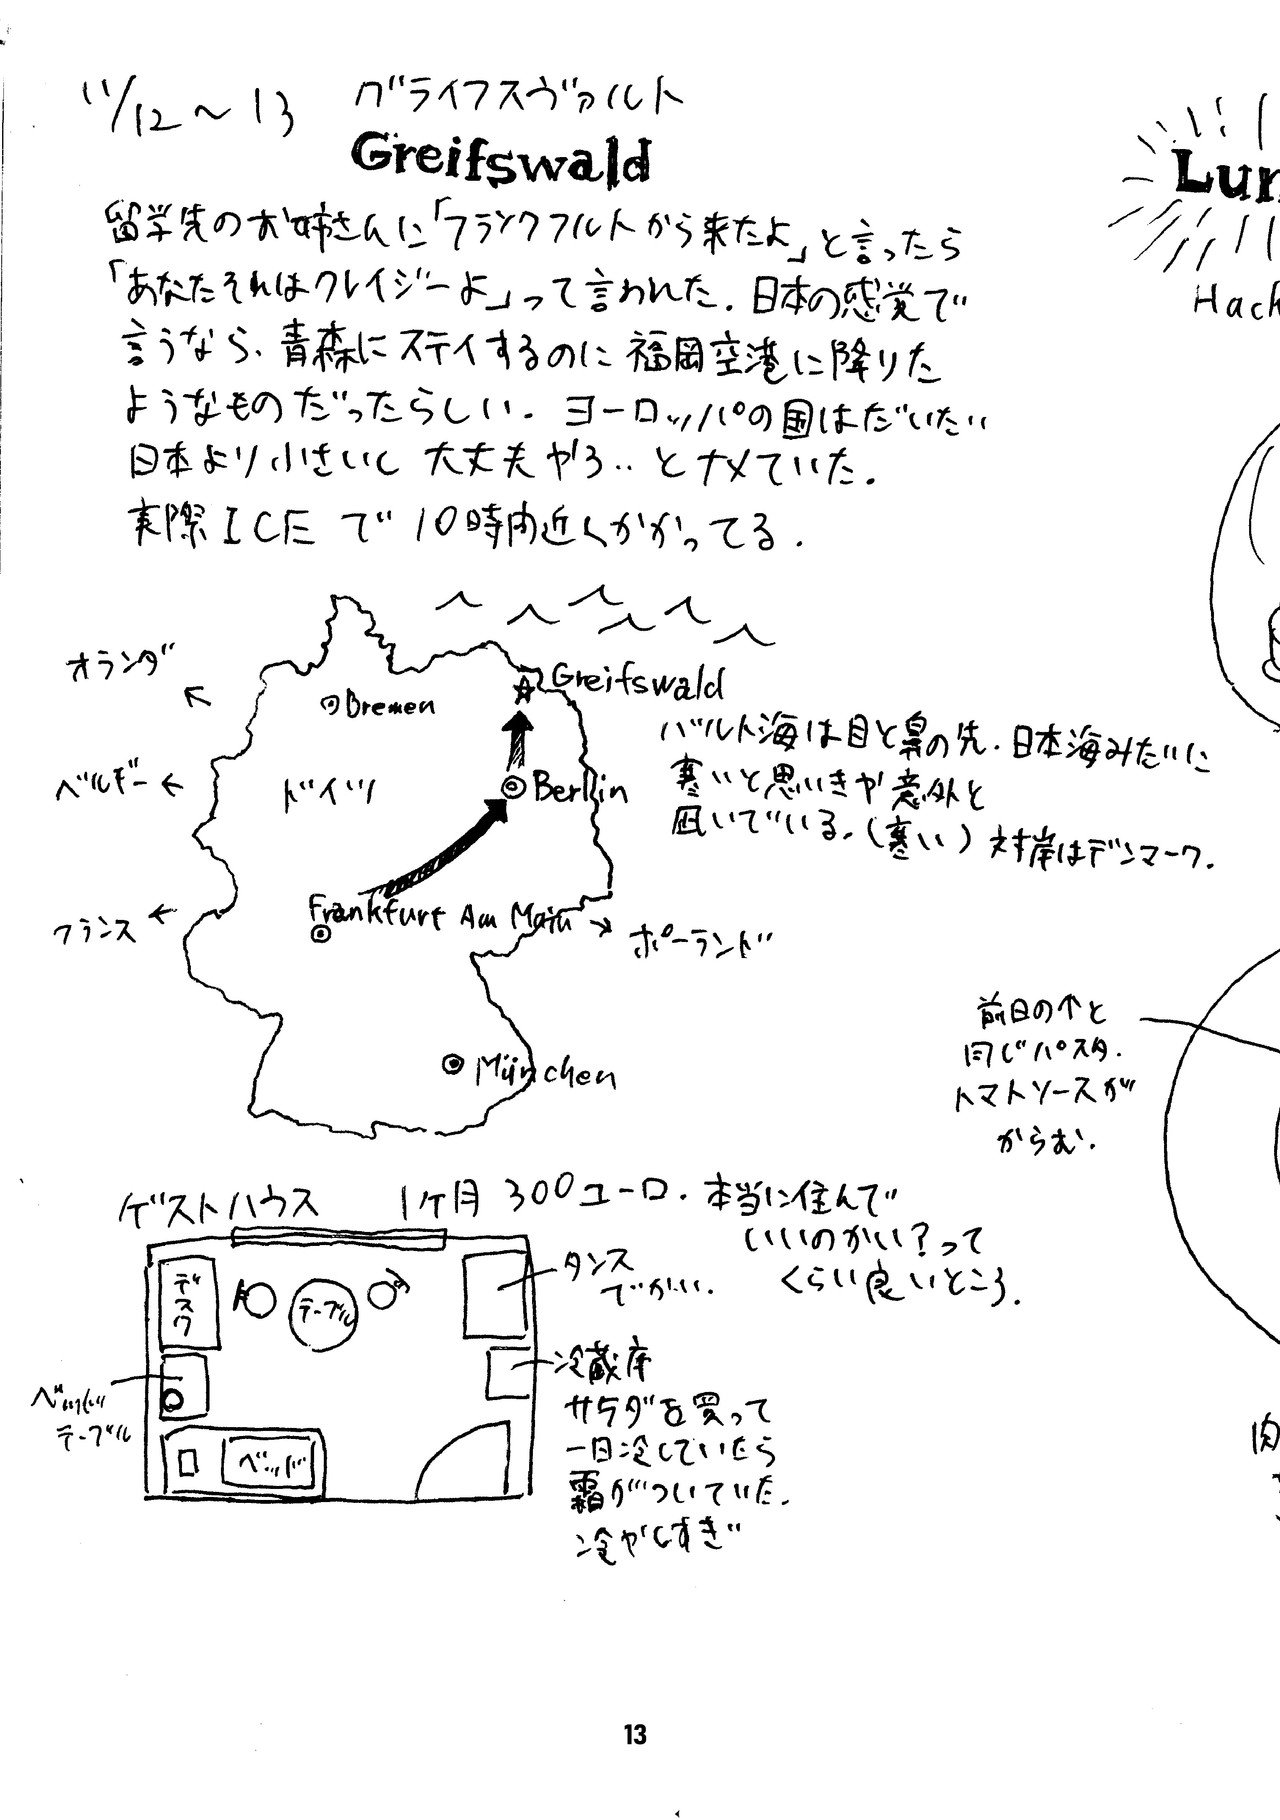 11/12～13 グライフスヴァルト
Greifswald
留学先のお姉さんに「フランクフルトから来たよ」と言ったら
「あなたそれはクレイジーよ」って言われた. 日本の感覚で
言うなら、青森にステイするのに福岡空港に降りた
ようなものだったらしい. ヨーロッパの国はだいたい
日本より小さいし 大丈夫やろ‥とナメていた.
実際ICEで10時間近くかかってる.
オランダ
Bremen
Greifswald
バルト海は目と鼻の先. 日本海みたいに
寒いと思いきや意外と
凪いでいる. (寒い) 対岸はデンマーク.
ベルギー
ドイツ
Berlin
フランス
Frankfurt Am Main
ポーランド
München
前日の↑と
同じパスタ.
トマトソースが
からむ.
ゲストハウス 1ヶ月 300ユーロ. 本当に住んで
いいのかい?って
くらい良いところ.
デスク
テーブル
タンス
でかい.
ベッド
テーブル
ベッド
冷蔵庫
サラダを買って
一日冷していたら
霜がついていた.
冷やしすぎ
Lun
Hack
肉
13